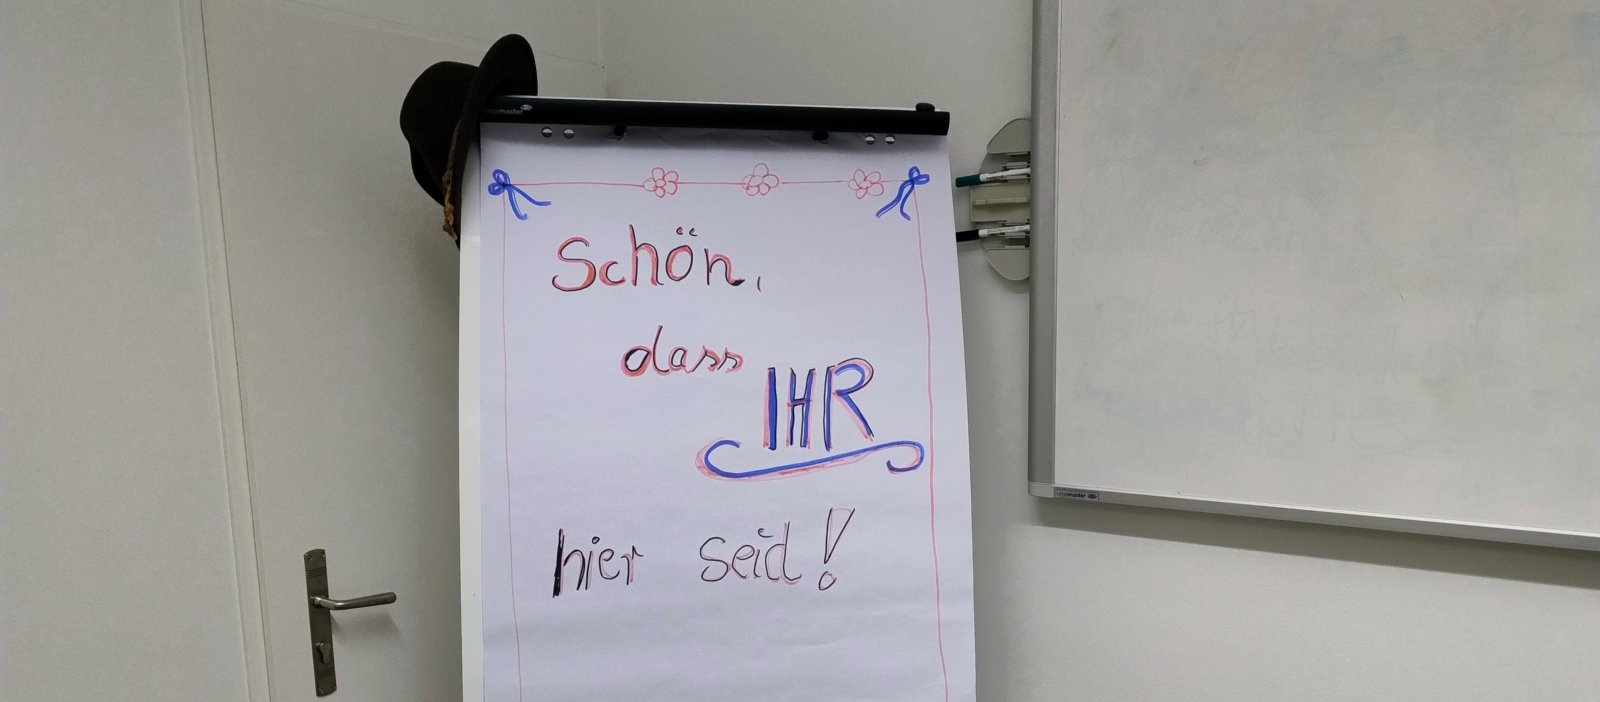 Legamaster
Schön,
dass IHR
hier seid!
Legamaster